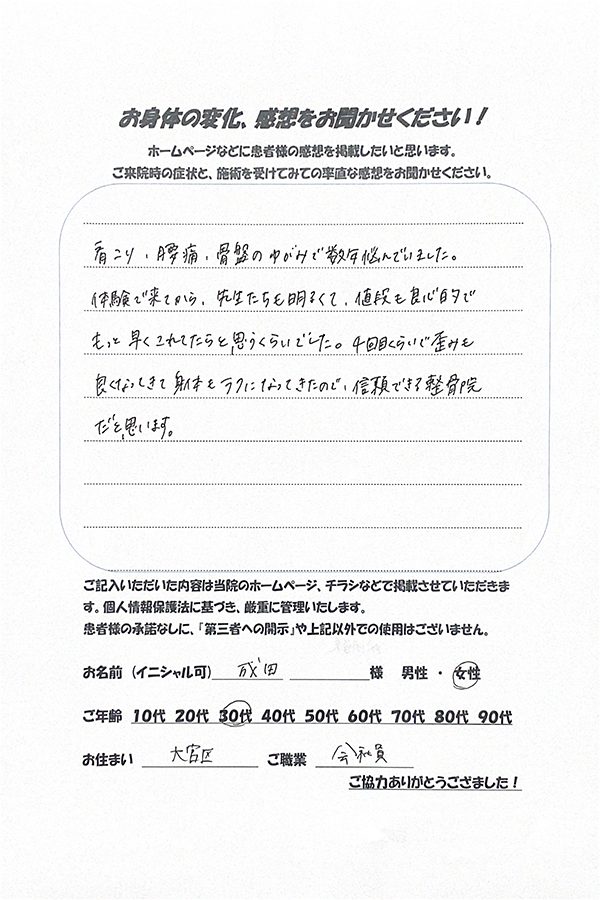 お身体の変化、感想をお聞かせください！
ホームページなどに患者様の感想を掲載したいと思います。
ご来院時の症状と、施術を受けてみての率直な感想をお聞かせください。
肩こり、腰痛、骨盤のゆがみで数年悩んでいました。
体験で来てから、先生たちも明るくて、値段も良心的で
もっと早くこれてたらと思うくらいでした。4回目くらいで歪みも
良くなってきて身体もラクになってきたので、信頼できる整骨院
だと思います。
ご記入いただいた内容は当院のホームページ、チラシなどで掲載させていただきま
す。個人情報保護法に基づき、厳重に管理いたします。
患者様の承諾なしに、「第三者への開示」や上記以外での使用はございません。
お名前（イニシャル可） 成田 様 男性 ・ 女性
ご年齢 10代 20代 30代 40代 50代 60代 70代 80代 90代
お住まい 大宮区 ご職業 会社員
ご協力ありがとうござました！